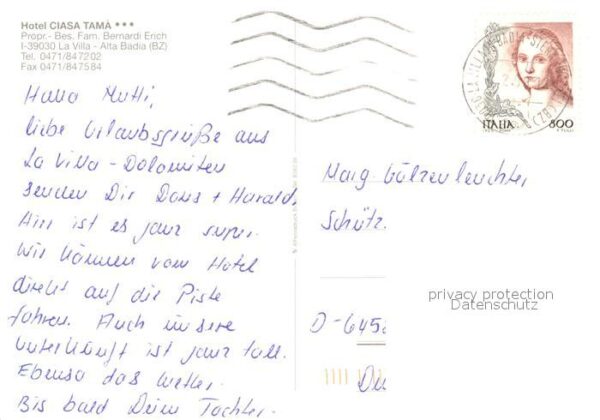 Hotel CIASA TAMÀ ***
Propr.- Bes. Fam. Bernardi Erich
I-39030 La Villa - Alta Badia (BZ)
Tel. 0471/847202
Fax 0471/847584
Hallo Mutti,
liebe Urlaubsgrüße aus
La Villa - Dolomiten
senden Dir Doris + Harald.
Hier ist es ganz super.
Wir können vom Hotel
direkt auf die Piste
fahren. Auch unsere
Unterkunft ist ganz toll.
Ebenso das Wetter.
Bis bald Deine Tochter
ITALIA 800
Schütz
privacy protection
Datenschutz
D-645